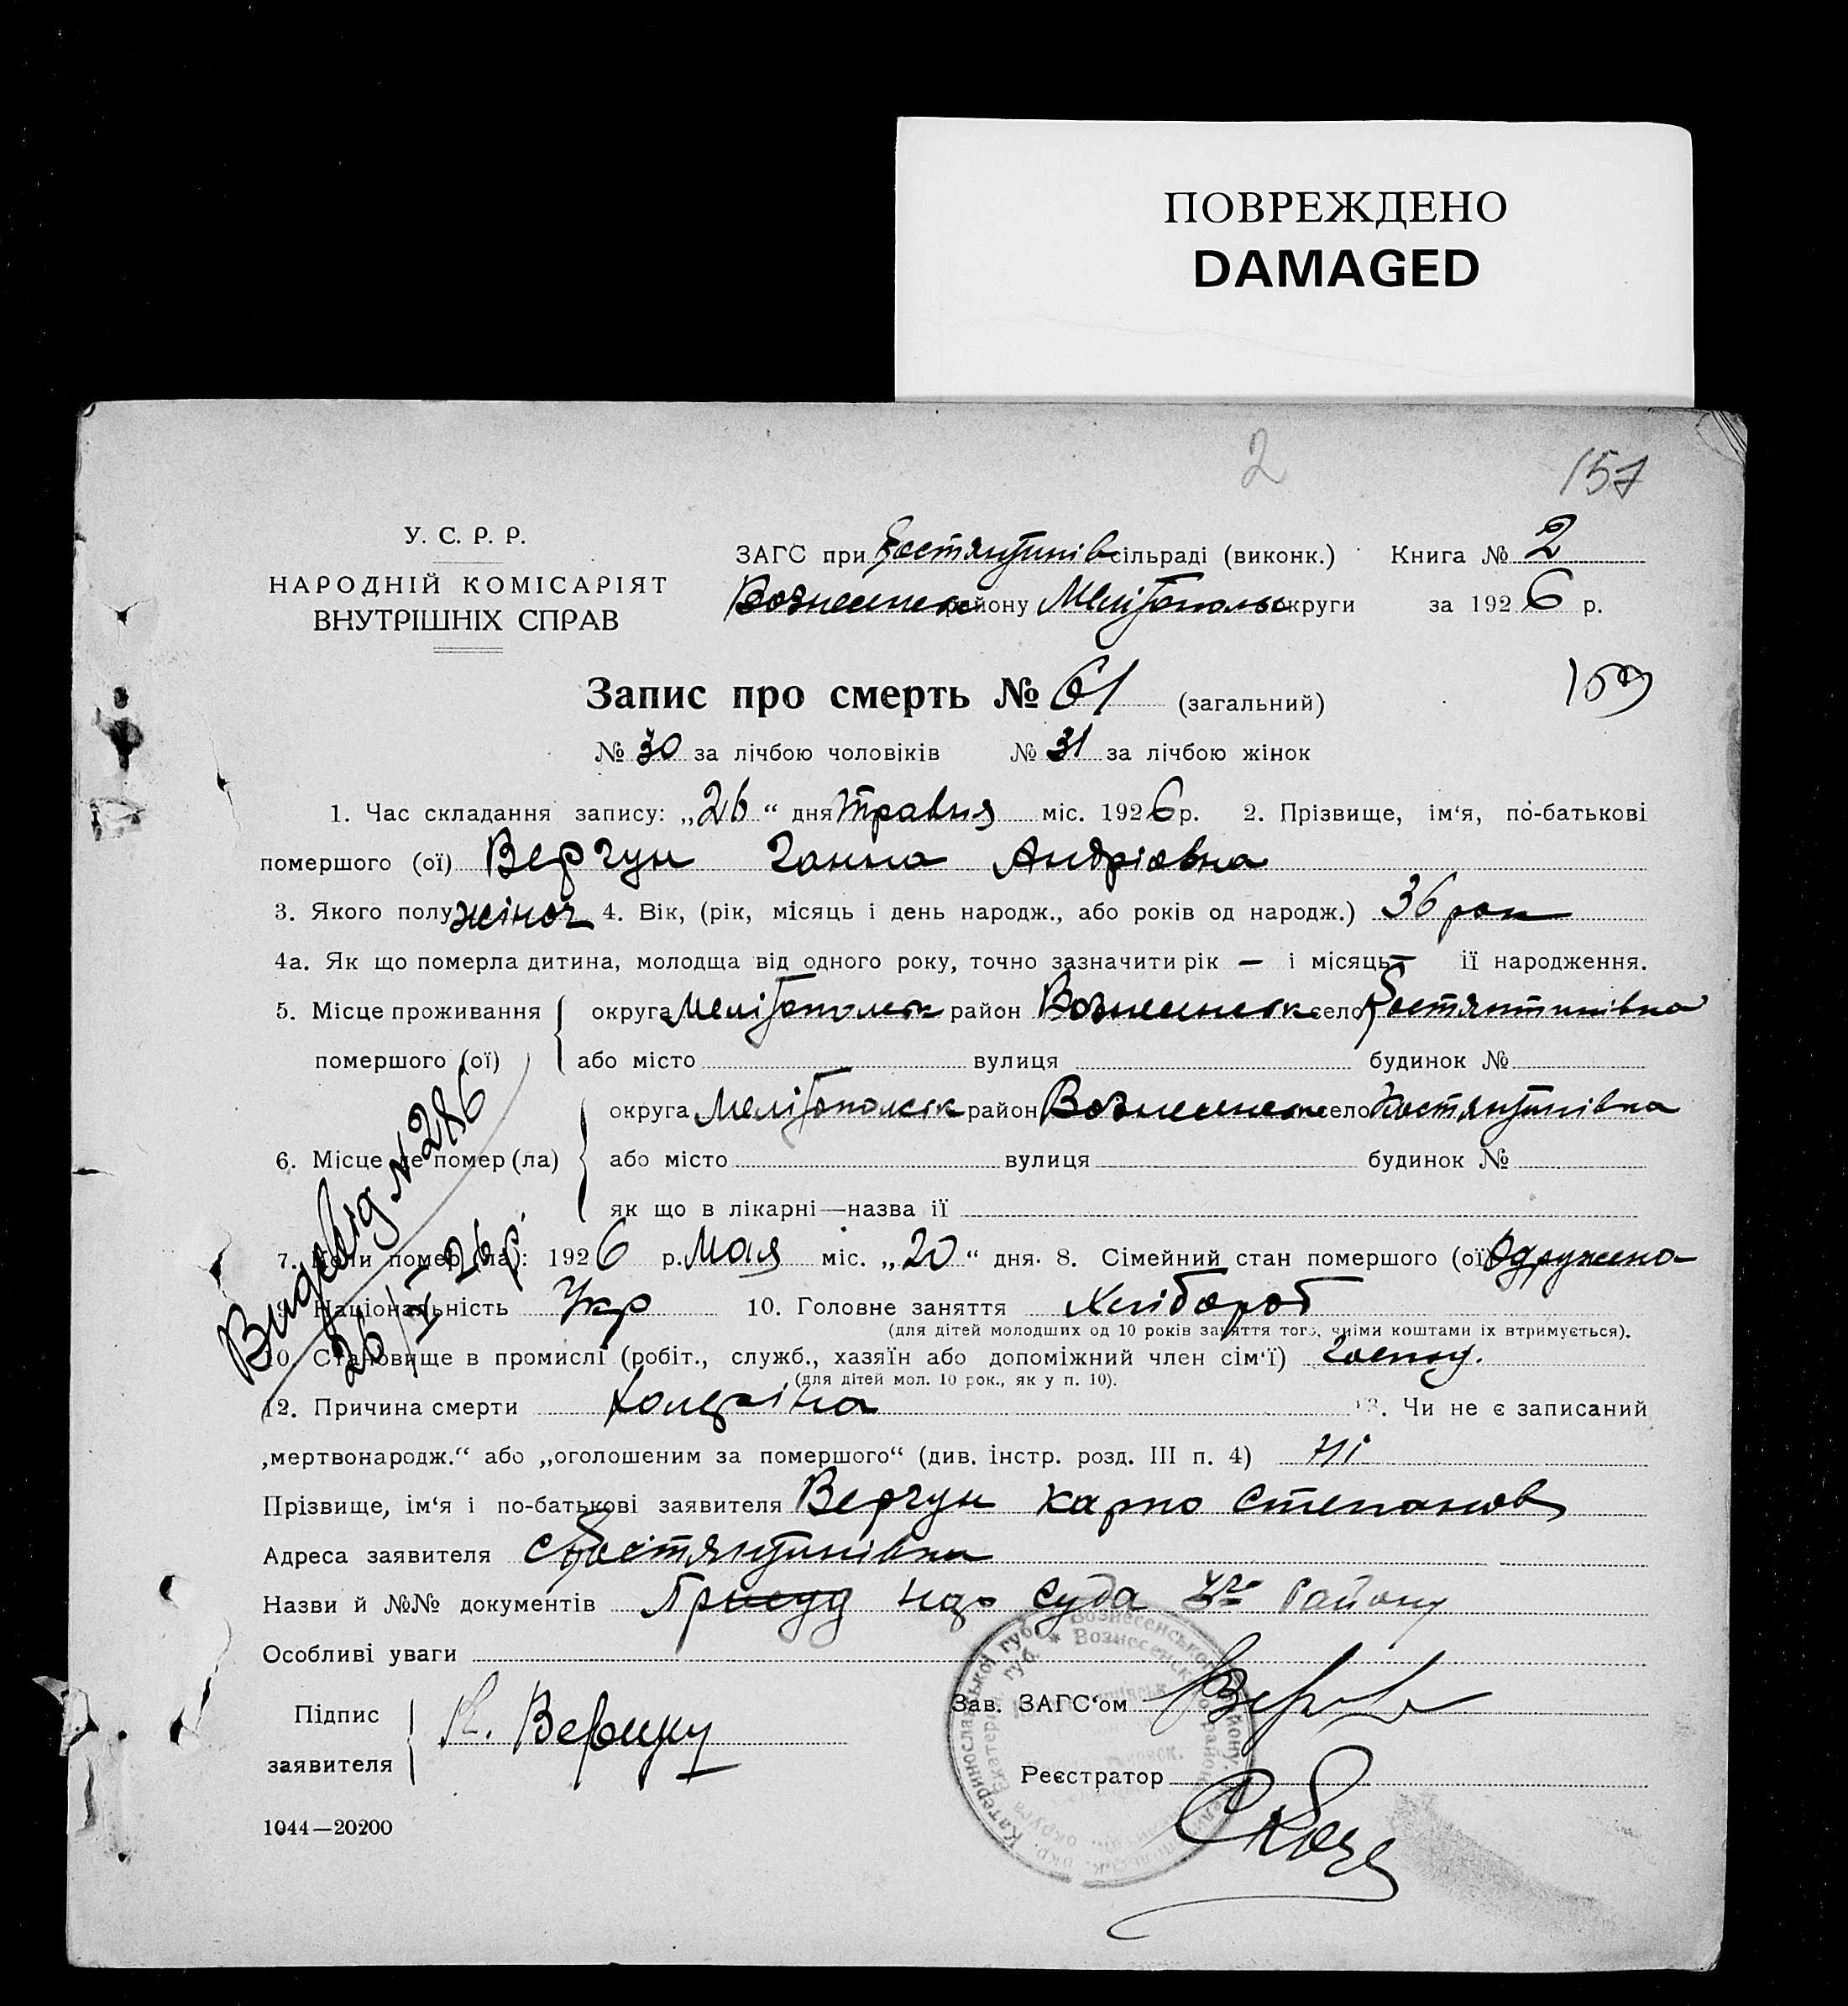 ПОВРЕЖДЕНО
DAMAGED
2
157
У. С. Р. Р.
НАРОДНІЙ КОМІСАРІЯТ
ВНУТРІШНІХ СПРАВ
ЗАГС при Костянтинів сільраді (виконк.) Книга № 2
Вознесенск району Мелітопольс округи за 1926 р.
Запис про смерть № 61 (загальний)
159
№ 30 за лічбою чоловіків № 31 за лічбою жінок
1. Час складання запису: „26“ дня травня міс. 1926 р. 2. Прізвище, ім'я, по-батькові
помершого (ої) Вергун Ганна Андріевна
3. Якого полу жіноч 4. Вік, (рік, місяць і день народж., або років од народж.) 36 рок
4а. Як що померла дитина, молодша від одного року, точно зазначити рік — і місяць — її народження.
5. Місце проживання округа Мелітопольск район Вознесенск село Костянтинівка
помершого (ої) або місто вулиця будинок №
округа Мелітопольск район Вознесенск село Костянтинівка
6. Місце де помер (ла) або місто вулиця будинок №
як що в лікарні—назва її
7. Коли помер (ла): 1926 р. Мая міс. „20“ дня. 8. Сімейний стан помершого (ої) одружена
9. Національність Укр 10. Головне заняття Хлібороб
(для дітей молодших од 10 років заняття того, чиїми коштами їх втримується).
10. Становище в промислі (робіт., служб., хазяїн або допоміжний член сім'ї)
(для дітей мол. 10 рок., як у п. 10).
12. Причина смерти 13. Чи не є записаний
„мертвонародж.“ або „оголошеним за помершого“ (див. інстр. розд. III п. 4) ні
Прізвище, ім'я і по-батькові заявителя Вергун Карпо Степанов
Адреса заявителя с Костянтинівка
Назви й №№ документів Нар Суда Району
Особливі уваги
Підпис
заявителя
К. Вергун
Зав. ЗАГС'ом
Реєстратор
1044—20200
Видавід № 286
26/V 26 р.